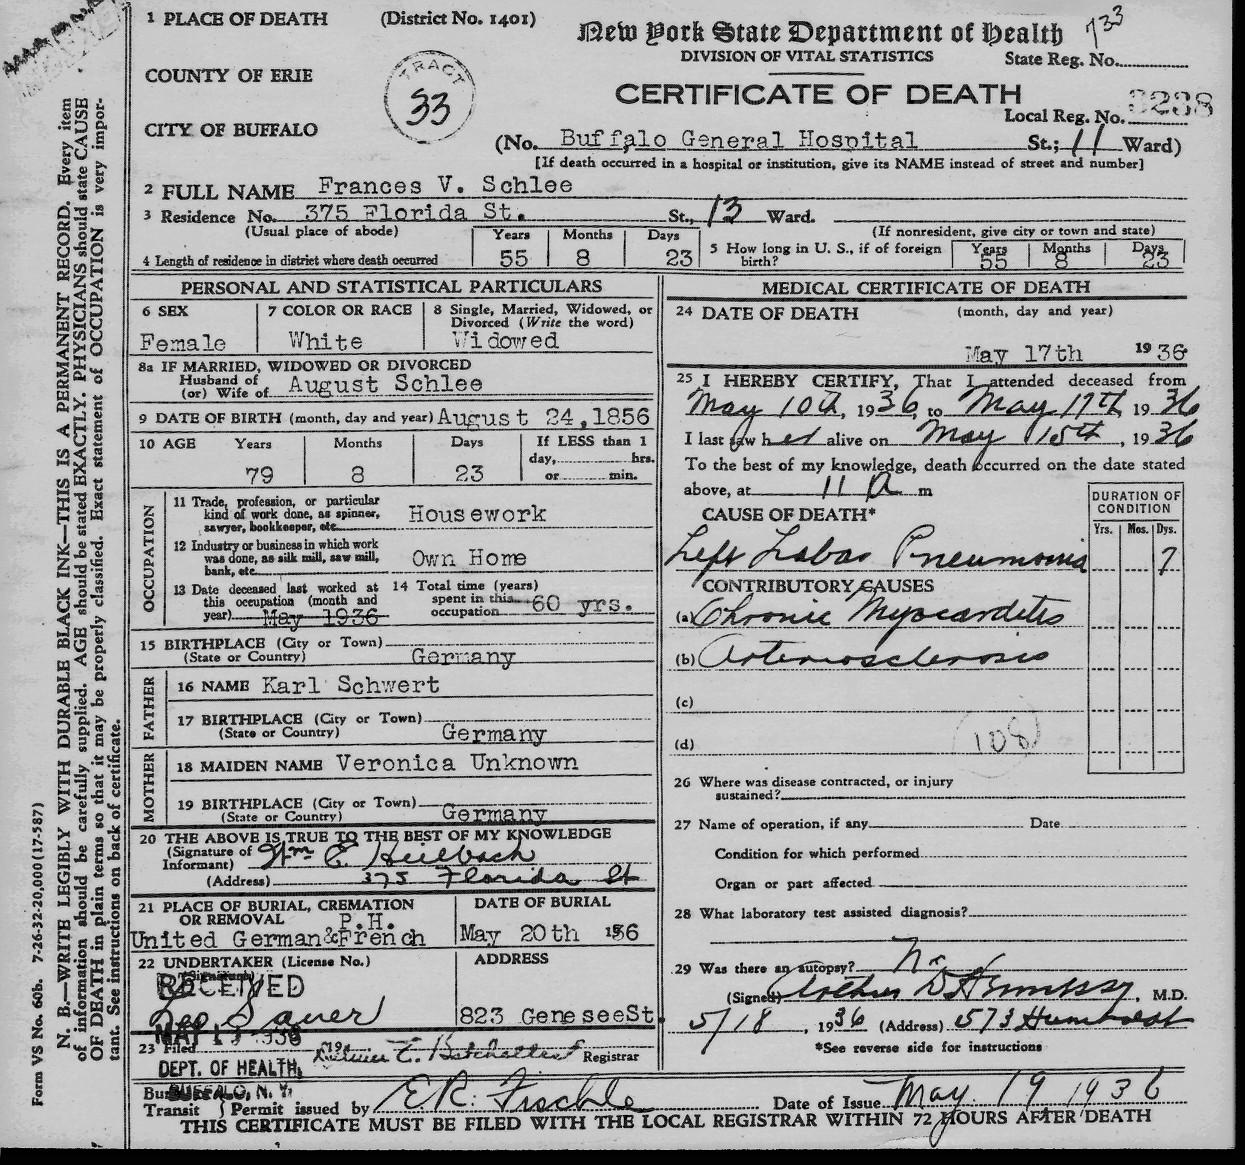 1 PLACE OF DEATH (District No. 1401)
New York State Department of Health 733
DIVISION OF VITAL STATISTICS
State Reg. No.
COUNTY OF ERIE
TRACT
33
CERTIFICATE OF DEATH
Local Reg. No. 3238
CITY OF BUFFALO
(No. Buffalo General Hospital St.; 11 Ward)
[If death occurred in a hospital or institution, give its NAME instead of street and number]
2 FULL NAME Frances V. Schlee
3 Residence No. 375 Florida St. St., 13 Ward.
(Usual place of abode)
(If nonresident, give city or town and state)
4 Length of residence in district where death occurred Years 55 Months 8 Days 23
5 How long in U. S., if of foreign birth? Years 55 Months 8 Days 23
PERSONAL AND STATISTICAL PARTICULARS
6 SEX
Female
7 COLOR OR RACE
White
8 Single, Married, Widowed, or
Divorced (Write the word)
Widowed
8a IF MARRIED, WIDOWED OR DIVORCED
Husband of
(or) Wife of August Schlee
9 DATE OF BIRTH (month, day and year) August 24, 1856
10 AGE Years Months Days If LESS than 1
day, hrs.
79 8 23 or min.
OCCUPATION
11 Trade, profession, or particular
kind of work done, as spinner,
sawyer, bookkeeper, etc. Housework
12 Industry or business in which work
was done, as silk mill, saw mill,
bank, etc. Own Home
13 Date deceased last worked at
this occupation (month and
year) May 1936
14 Total time (years)
spent in this
occupation 60 yrs.
15 BIRTHPLACE (City or Town)
(State or Country) Germany
FATHER
16 NAME Karl Schwert
17 BIRTHPLACE (City or Town)
(State or Country) Germany
MOTHER
18 MAIDEN NAME Veronica Unknown
19 BIRTHPLACE (City or Town)
(State or Country) Germany
20 THE ABOVE IS TRUE TO THE BEST OF MY KNOWLEDGE
(Signature of
Informant) Wm E Heilbach
(Address) 375 Florida St
21 PLACE OF BURIAL, CREMATION
OR REMOVAL P.H.
United German&French
DATE OF BURIAL
May 20th 1936
22 UNDERTAKER (License No.)
(Signature)
Leo Sauer
ADDRESS
823 Genesee St.
RECEIVED
MAY 19 1936
DEPT. OF HEALTH,
BUFFALO, N. Y.
23 Filed 19 Registrar
MEDICAL CERTIFICATE OF DEATH
24 DATE OF DEATH (month, day and year)
May 17th 1936
25 I HEREBY CERTIFY, That I attended deceased from
May 10th, 1936, to May 17th, 1936
I last saw her alive on May 15th, 1936
To the best of my knowledge, death occurred on the date stated
above, at 11 a m
CAUSE OF DEATH*
Left Lobar Pneumonia
DURATION OF
CONDITION
Yrs. Mos. Dys.
7
CONTRIBUTORY CAUSES
(a) Chronic Myocarditis
(b) Arteriosclerosis
(c)
(d)
108
26 Where was disease contracted, or injury
sustained?
27 Name of operation, if any Date
Condition for which performed
Organ or part affected
28 What laboratory test assisted diagnosis?
29 Was there an autopsy? No
(Signed) , M.D.
5/18, 1936 (Address) 573 Humboldt
*See reverse side for instructions
Transit Permit issued by E R. Fischle Date of Issue May 19 1936
THIS CERTIFICATE MUST BE FILED WITH THE LOCAL REGISTRAR WITHIN 72 HOURS AFTER DEATH
N. B.—WRITE LEGIBLY WITH DURABLE BLACK INK—THIS IS A PERMANENT RECORD. Every item
of information should be carefully supplied. AGE should be stated EXACTLY. PHYSICIANS should state CAUSE
OF DEATH in plain terms so that it may be properly classified. Exact statement of OCCUPATION is very impor-
tant. See instructions on back of certificate.
Form VS No. 60b. 7-26-32-20,000 (17-587)